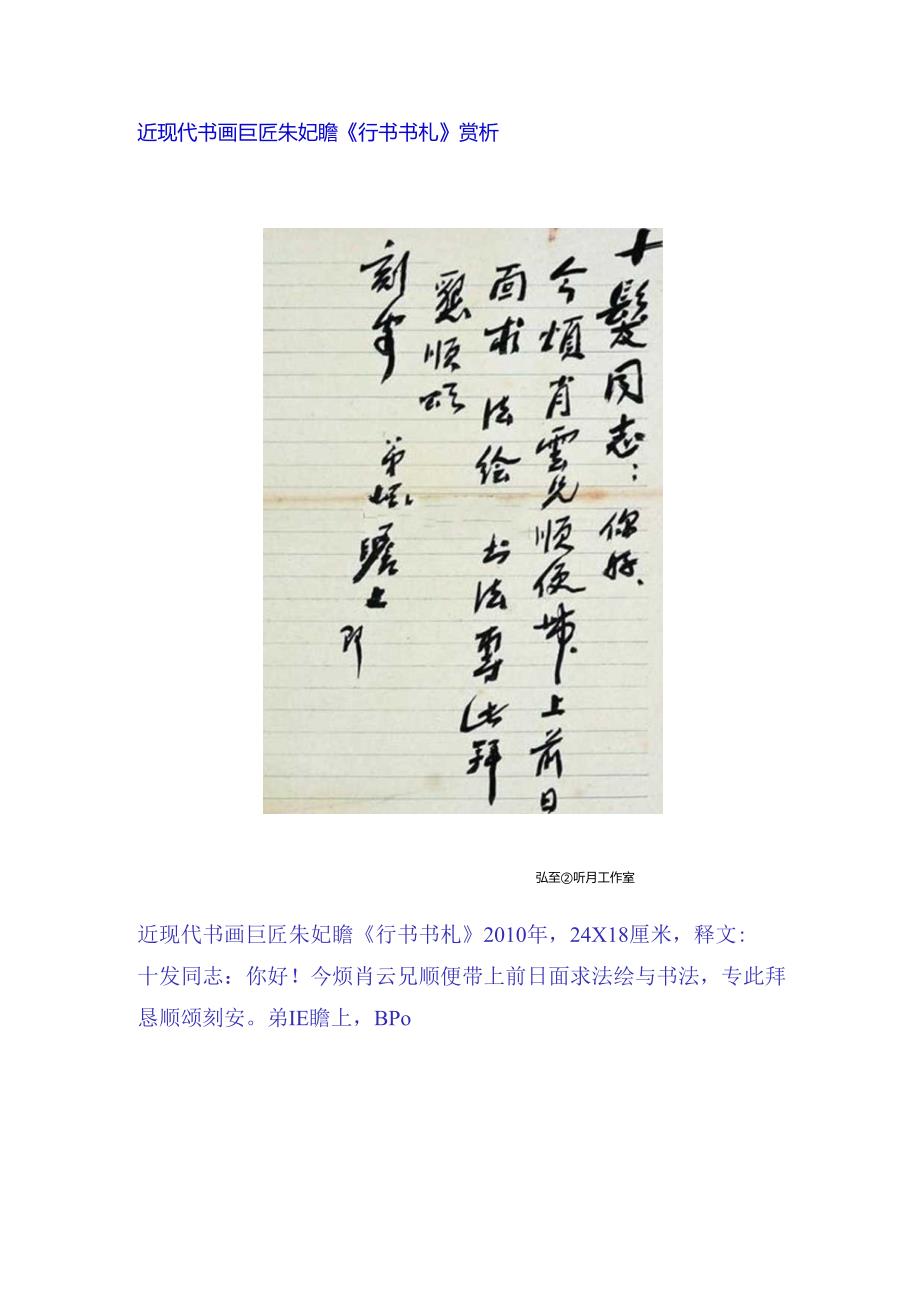 近现代书画巨匠朱妃瞻《行书书札》赏析
十髮同志：你好、
今煩肖雲兄順便带上前日
面求 法绘 书法專此拜
懇順頌
刻安
弟屺瞻上 即
弘至②听月工作室
近现代书画巨匠朱妃瞻《行书书札》2010年，24X18厘米，释文：
十发同志：你好！今烦肖云兄顺便带上前日面求法绘与书法，专此拜
恳顺颂刻安。弟IE瞻上，BPo